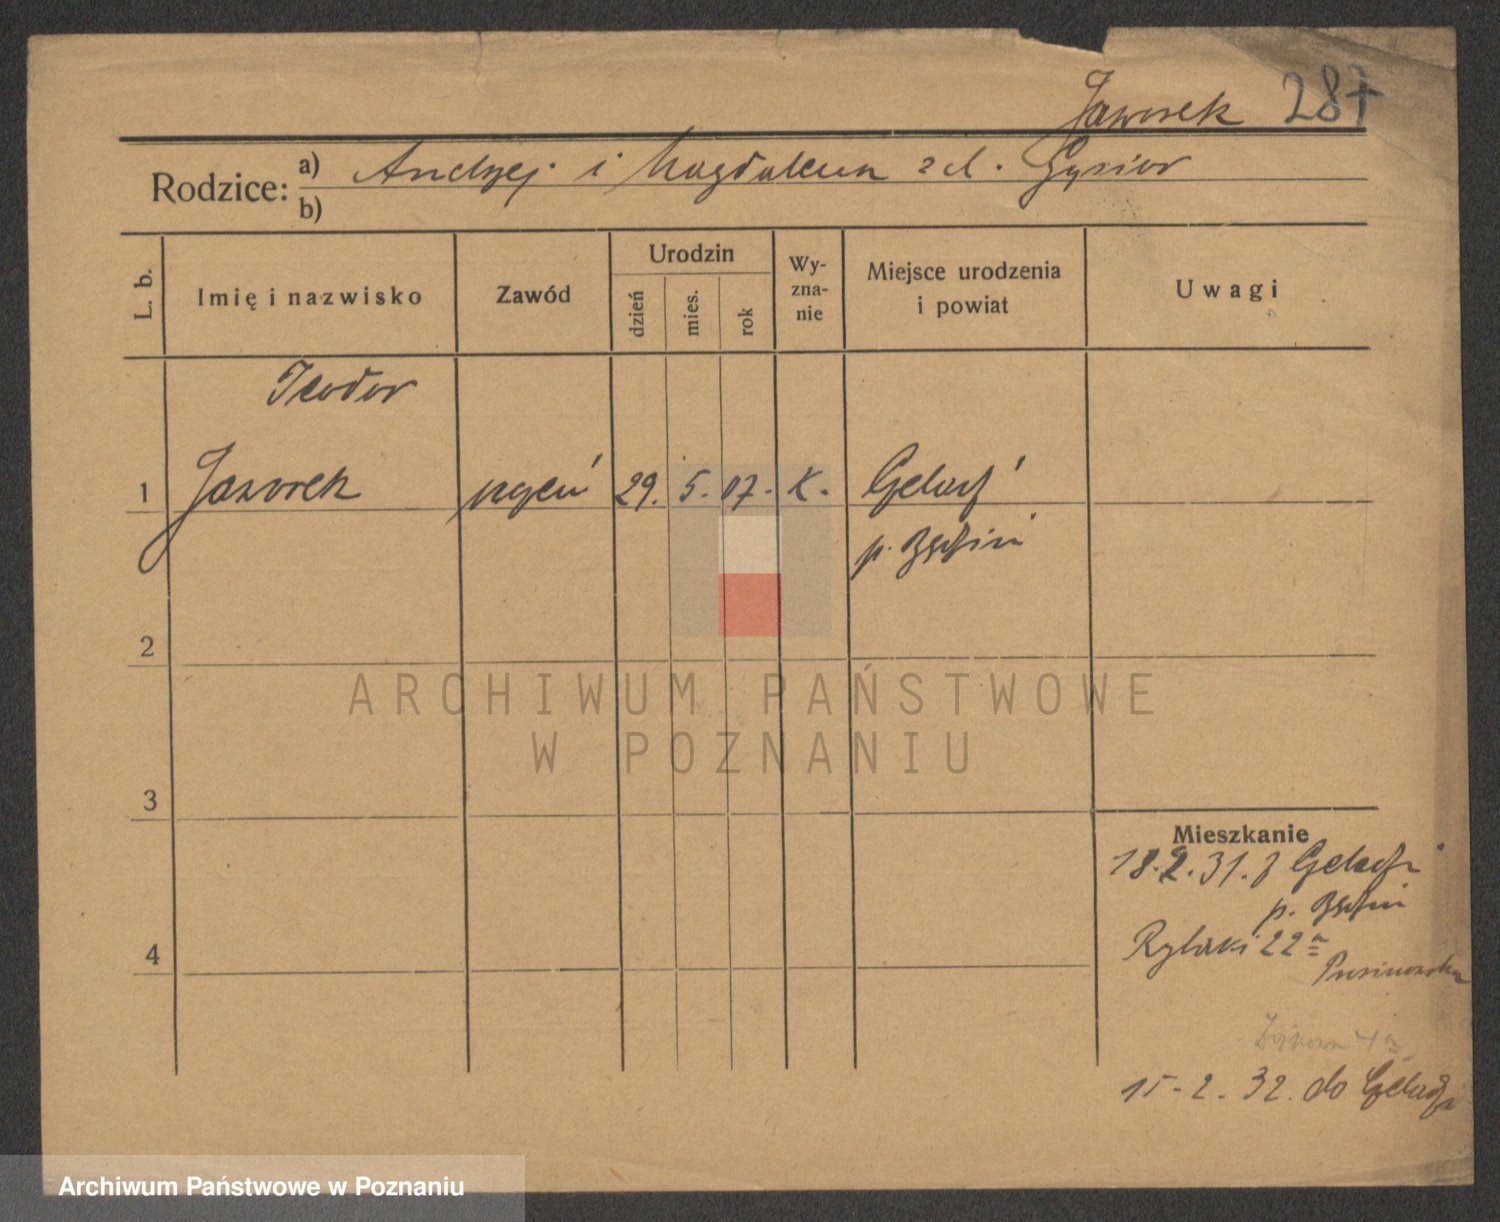 Jaworek 287
Rodzice: a) Andrzej i Magdalena z d. Gąsior
b)
L. b.
Imię i nazwisko
Zawód
Urodzin
dzień
mies.
rok
Wy-
zna-
nie
Miejsce urodzenia
i powiat
Uwagi
Teodor
1 Jaworek 29. 5. 07. K.
p. Będzin
2
3
4
Mieszkanie
18.2.31. z
p. Będzin
Rybaki 22a
15-2.32. do
ARCHIWUM PAŃSTWOWE
W POZNANIU
Archiwum Państwowe w Poznaniu